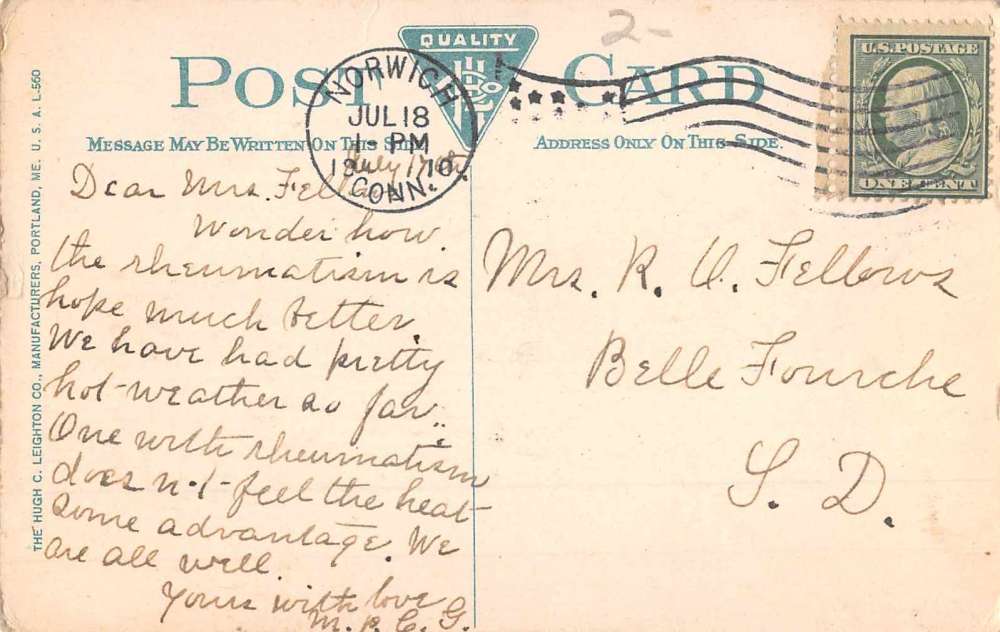 2-
QUALITY
POST CARD
U.S. POSTAGE
ONE CENT
NORWICH
JUL 18
1 - PM
1910
CONN.
MESSAGE MAY BE WRITTEN ON THIS SIDE
ADDRESS ONLY ON THIS SIDE.
THE HUGH C. LEIGHTON CO., MANUFACTURERS, PORTLAND, ME. U. S. A. L-560
July 17
Dear Mrs. Fellows
Wonder how
the rheumatism is
hope much better
We have had pretty
hot weather so far.
One with rheumatism
does not feel the heat
some advantage. We
are all well.
Yours with love
M. R. C. G.
Mrs. R. O. Fellows
Belle Fourche
S. D.